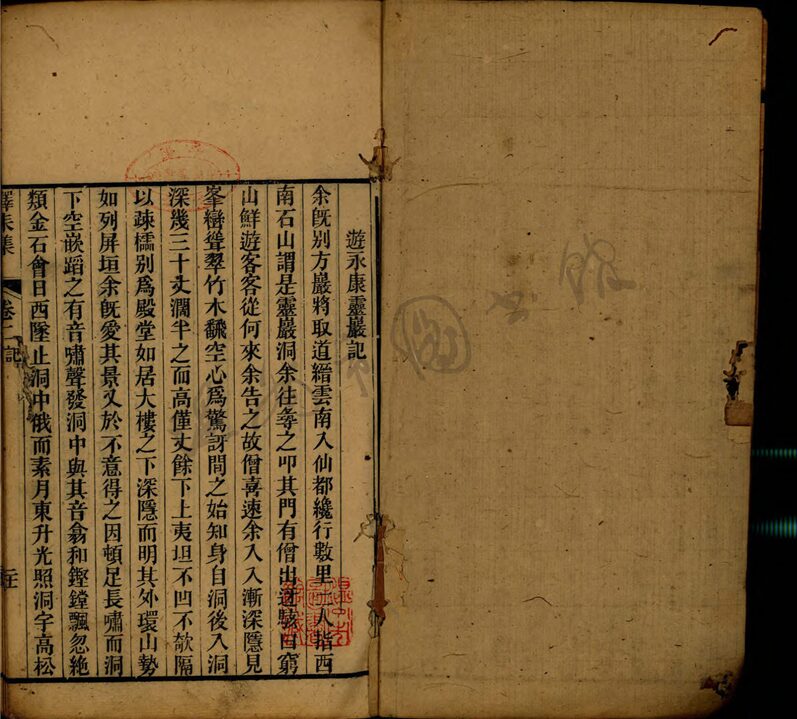 遊永康靈巖記
余旣別方巖將取道縉雲南入仙都纔行數里土人指西
南石山謂是靈巖洞余往尋之叩其門有僧出迓駭曰窮
山鮮遊客客從何來余告之故僧喜速余入入漸深隱見
峯巒聳翠竹木翳空心爲驚訝問之始知身自洞後入洞
深幾三十丈濶半之而高僅丈餘下上夷坦不凹不欹隔
以疎櫺別爲殿堂如居大樓之下深隱而明其外環山勢
如列屏垣余旣愛其景又於不意得之因頓足長嘯而洞
下空嵌蹈之有音嘯聲發洞中與其音翕和鏗鏜飄忽絶
類金石會日西墜止洞中俄而素月東升光照洞宇高松
集
卷二 記